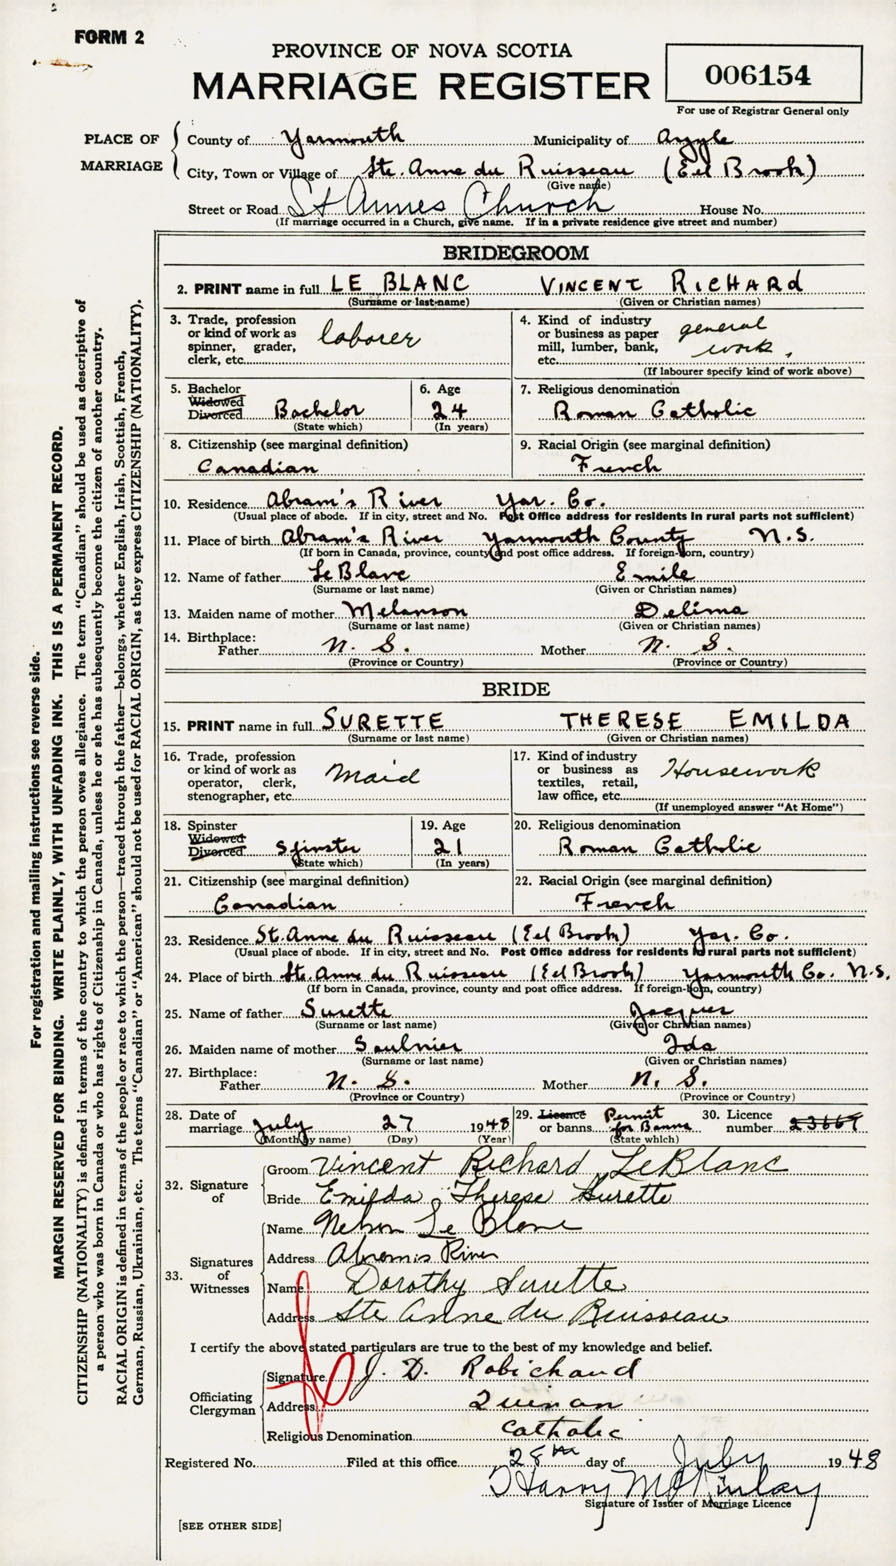 FORM 2
PROVINCE OF NOVA SCOTIA
MARRIAGE REGISTER
006154
For use of Registrar General only
PLACE OF MARRIAGE
County of Yarmouth Municipality of Argyle
City, Town or Village of Ste. Anne du Ruisseau (Eel Brook)
(Give name)
Street or Road St Annes Church House No.
(If marriage occurred in a Church, give name. If in a private residence give street and number)
BRIDEGROOM
2. PRINT name in full LE BLANC VINCENT RICHARD
(Surname or last name) (Given or Christian names)
3. Trade, profession or kind of work as spinner, grader, clerk, etc. laborer
4. Kind of industry or business as paper mill, lumber, bank, etc. general work.
(If labourer specify kind of work above)
5. Bachelor Widowed Divorced Bachelor
(State which)
6. Age 24
(In years)
7. Religious denomination
Roman Catholic
8. Citizenship (see marginal definition)
Canadian
9. Racial Origin (see marginal definition)
French
10. Residence Abram's River Yar. Co.
(Usual place of abode. If in city, street and No. Post Office address for residents in rural parts not sufficient)
11. Place of birth Abram's River Yarmouth County N.S.
(If born in Canada, province, county and post office address. If foreign-born, country)
12. Name of father LeBlanc Emile
(Surname or last name) (Given or Christian names)
13. Maiden name of mother Melanson Delima
(Surname or last name) (Given or Christian names)
14. Birthplace:
Father N. S. Mother N. S.
(Province or Country) (Province or Country)
BRIDE
15. PRINT name in full SURETTE THERESE EMILDA
(Surname or last name) (Given or Christian names)
16. Trade, profession or kind of work as operator, clerk, stenographer, etc. Maid
17. Kind of industry or business as textiles, retail, law office, etc. Housework
(If unemployed answer "At Home")
18. Spinster Widowed Divorced Spinster
(State which)
19. Age 21
(In years)
20. Religious denomination
Roman Catholic
21. Citizenship (see marginal definition)
Canadian
22. Racial Origin (see marginal definition)
French
23. Residence St. Anne du Ruisseau (Eel Brook) Yar. Co.
(Usual place of abode. If in city, street and No. Post Office address for residents in rural parts not sufficient)
24. Place of birth Ste. Anne du Ruisseau (Eel Brook) Yarmouth Co. N.S.
(If born in Canada, province, county and post office address. If foreign-born, country)
25. Name of father Surette Jacques
(Surname or last name) (Given or Christian names)
26. Maiden name of mother Saulnier Ida
(Surname or last name) (Given or Christian names)
27. Birthplace:
Father N. S. Mother N. S.
(Province or Country) (Province or Country)
28. Date of marriage July 27 1948
(Month by name) (Day) (Year)
29. Licence or banns Permit for Banns
(State which)
30. Licence number 23669
32. Signature of
Groom Vincent Richard LeBlanc
Bride Emilda Therese Surette
33. Signatures of Witnesses
Name Nelson Le Blanc
Address Abrams River
Name Dorothy Surette
Address Ste Anne du Ruisseau
I certify the above stated particulars are true to the best of my knowledge and belief.
Officiating Clergyman
Signature J. D. Robichaud
Address Quinan
Religious Denomination Catholic
Registered No. Filed at this office 28th day of July 1948
Harry McKinlay
Signature of Issuer of Marriage Licence
[SEE OTHER SIDE]
For registration and mailing instructions see reverse side.
MARGIN RESERVED FOR BINDING. WRITE PLAINLY, WITH UNFADING INK. THIS IS A PERMANENT RECORD.
CITIZENSHIP (NATIONALITY) is defined in terms of the country to which the person owes allegiance. The term "Canadian" should be used as descriptive of
a person who was born in Canada or who has rights of Citizenship in Canada, unless he or she has subsequently become the citizen of another country.
RACIAL ORIGIN is defined in terms of the people or race to which the person—traced through the father—belongs, whether English, Irish, Scottish, French,
German, Russian, Ukrainian, etc. The terms "Canadian" or "American" should not be used for RACIAL ORIGIN, as they express CITIZENSHIP (NATIONALITY).